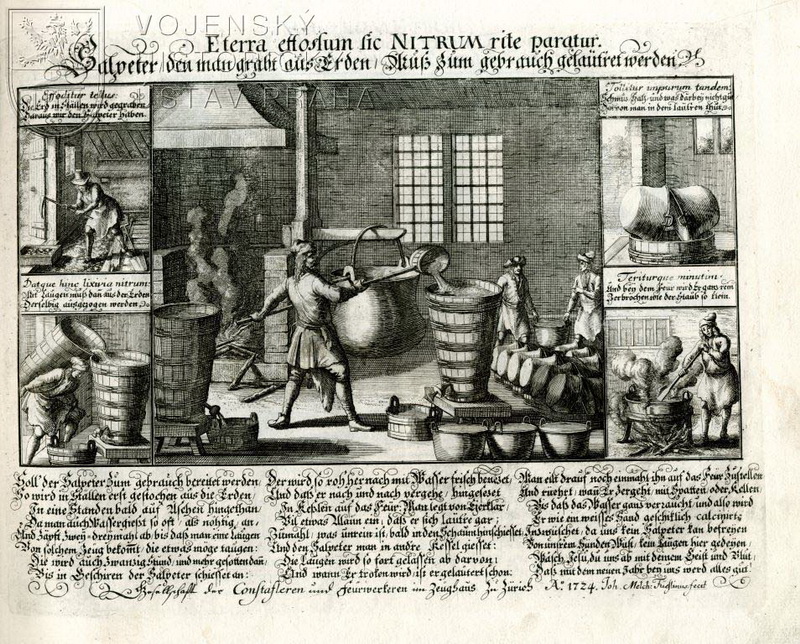 VOJENSKÝ
ÚSTAV PRAHA
E terra effossum sic NITRUM rite paratur.
Salpeter / den man grabt aus Erden / Muß zum gebrauch geläutret werden
Effoditur tellus:
Die Erd in Ställen wird gegraben
Daraus wir den Salpeter haben.
Tollitur impurum tandem:
Schmutz, Saltz, und was darbey nicht gut
Darvon man in dem läutren thut.
Datque hinc lixivia nitrum:
Mit Laugen muß dan aus der Erden
Derselbig ausgezogen werden
Teriturque minutim:
Und bey dem Feur wird Er gantz rein
Zerbrochen wie der Staub so klein.
Soll der Salpeter zum gebrauch bereitet werden
So wird in Ställen erst gestochen aus die Erden
In eine Standen bald auf Aschen hingethan
Da man auch Wasser giest so oft, als nöhtig, an,
Und Zapft zwey-dreymahl ab, bis daß man eine Laugen
Von solchem Zeug bekomt, die etwas möge taugen:
Die wird auch zwanzig Stund, und mehr gesotten dan,
Bis in Geschirren der Salpeter schiesset an:
Der wird so roh hernach mit Wasser frisch benezet,
Und daß er nach und nach vergehe, hingesezet
In Keßlen auf das Feur. Man legt von Eyerklar
Vil etwas Mann ein, daß er sich lautre gar;
Zumahl, was unrein ist, bald in den Schaum hinschiesset
Und den Salpeter man in andre Kessel giesset:
Die Laugen wird so fort gelassen ab darvon;
Und wann Er troken wird, ist er geläutert schon.
Man eilt drauf noch einmahl ihn auf das Feur zustellen
Und rüehrt, wañ Er zergeht, mit Spatten, oder Kellen
Bis daß das Wasser ganz verraucht, und also wird
Er wie ein weisses Sand geschiklich calcinirt;
Inzwüschet, da uns kein Salpeter kan betriegen
Von unsrem Sünden Wust, kein Laugen hier gedeyen,
Wasch Jesu, du uns ab mit deinem Geist und Blut,
Daß mit dem neuen Jahr bey uns werd alles gut!
Gesellschaft der Constafleren und Feurwerkeren im Zeughaus zu Zürich Aº. 1724. Joh. Melch. Füeßlinus fecit